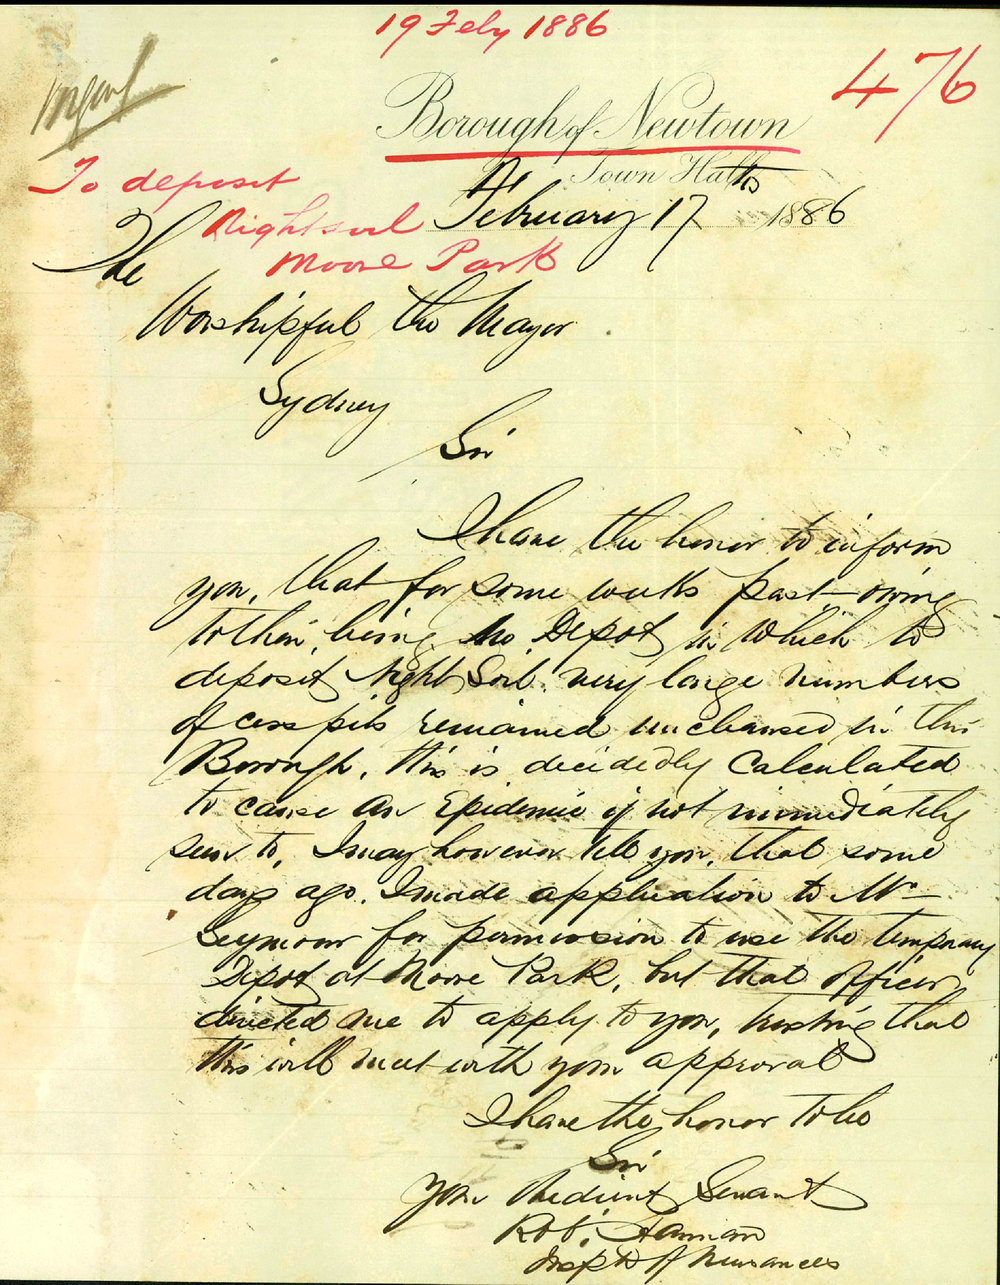 19 Feby 1886
476
Urgent
Borough of Newtown
Town Hall
To deposit
Nightsoil
Moore Park
February 17 1886
The
Worshipful the Mayor
Sydney
Sir
I have the honor to inform
you, that for some weeks past owing
to their being no Depot in which to
deposit Night Soil, very large numbers
of cess pits remained uncleansed in this
Borough, this is decidedly Calculated
to cause an Epidemic if not immediately
seen to, I may however tell you, that some
days ago, I made application to Mr
Seymour for permission to use the temporary
Depot at Moore Park, but that officer
directed me to apply to you, trusting that
this will meet with your approval
I have the honor to be
Sir
Your Obedient Servant
Robt.
Inspr of Nuisances